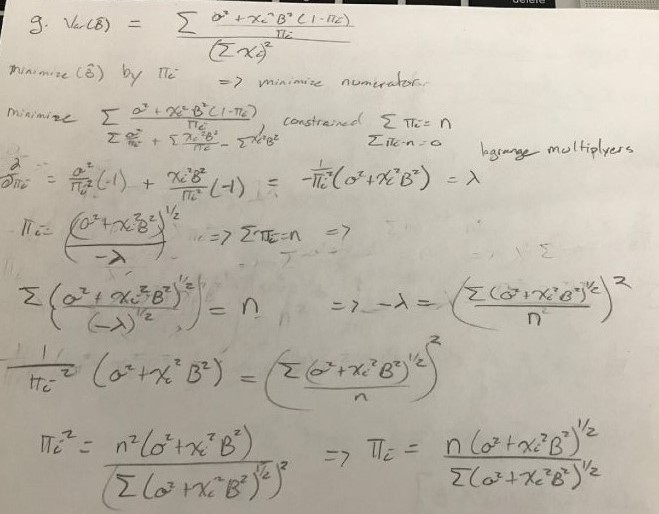 g. Var(β̂) = Σ (σ² + xᵢ²B²(1-πᵢ))/πᵢ / (Σxᵢ)²
minimize (β̂) by πᵢ => minimize numerator
minimize Σ (σ² + xᵢ²B²(1-πᵢ))/πᵢ constrained Σπᵢ = n
Σ σ²/πᵢ + Σ xᵢ²B²/πᵢ - Σxᵢ²B² Σπᵢ-n = 0 lagrange multiplyers
∂/∂πᵢ = σ²/πᵢ² (-1) + xᵢ²B²/πᵢ² (-1) = -1/πᵢ² (σ²+xᵢ²B²) = λ
πᵢ = ((σ²+xᵢ²B²)/-λ)^1/2 => Σπᵢ=n =>
Σ ((σ²+xᵢ²B²)^1/2/(-λ)^1/2) = n => -λ = (Σ(σ²+xᵢ²B²)^1/2/n)²
1/πᵢ² (σ²+xᵢ²B²) = (Σ(σ²+xᵢ²B²)^1/2/n)²
πᵢ² = n²(σ²+xᵢ²B²)/(Σ(σ²+xᵢ²B²)^1/2)² => πᵢ = n(σ²+xᵢ²B²)^1/2/Σ(σ²+xᵢ²B²)^1/2